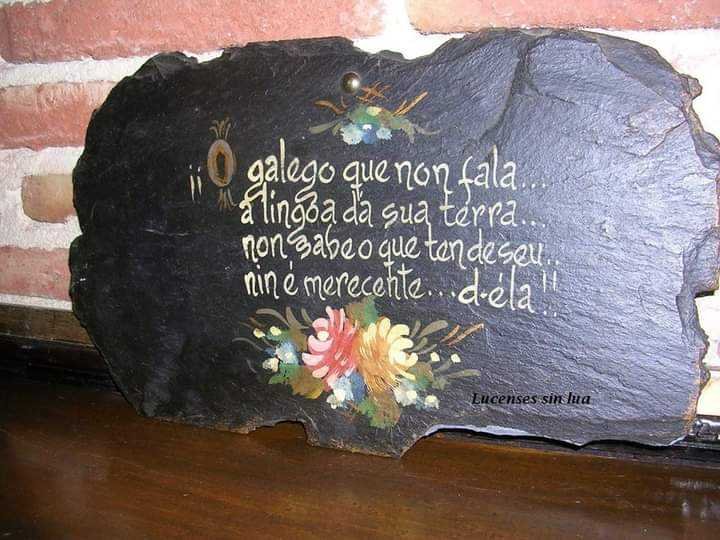 ¡¡O galego que non fala...
a lingoa da sua terra...
non sabe o que ten de seu..
nin é merecente...d-éla!!
Lucenses sin lua